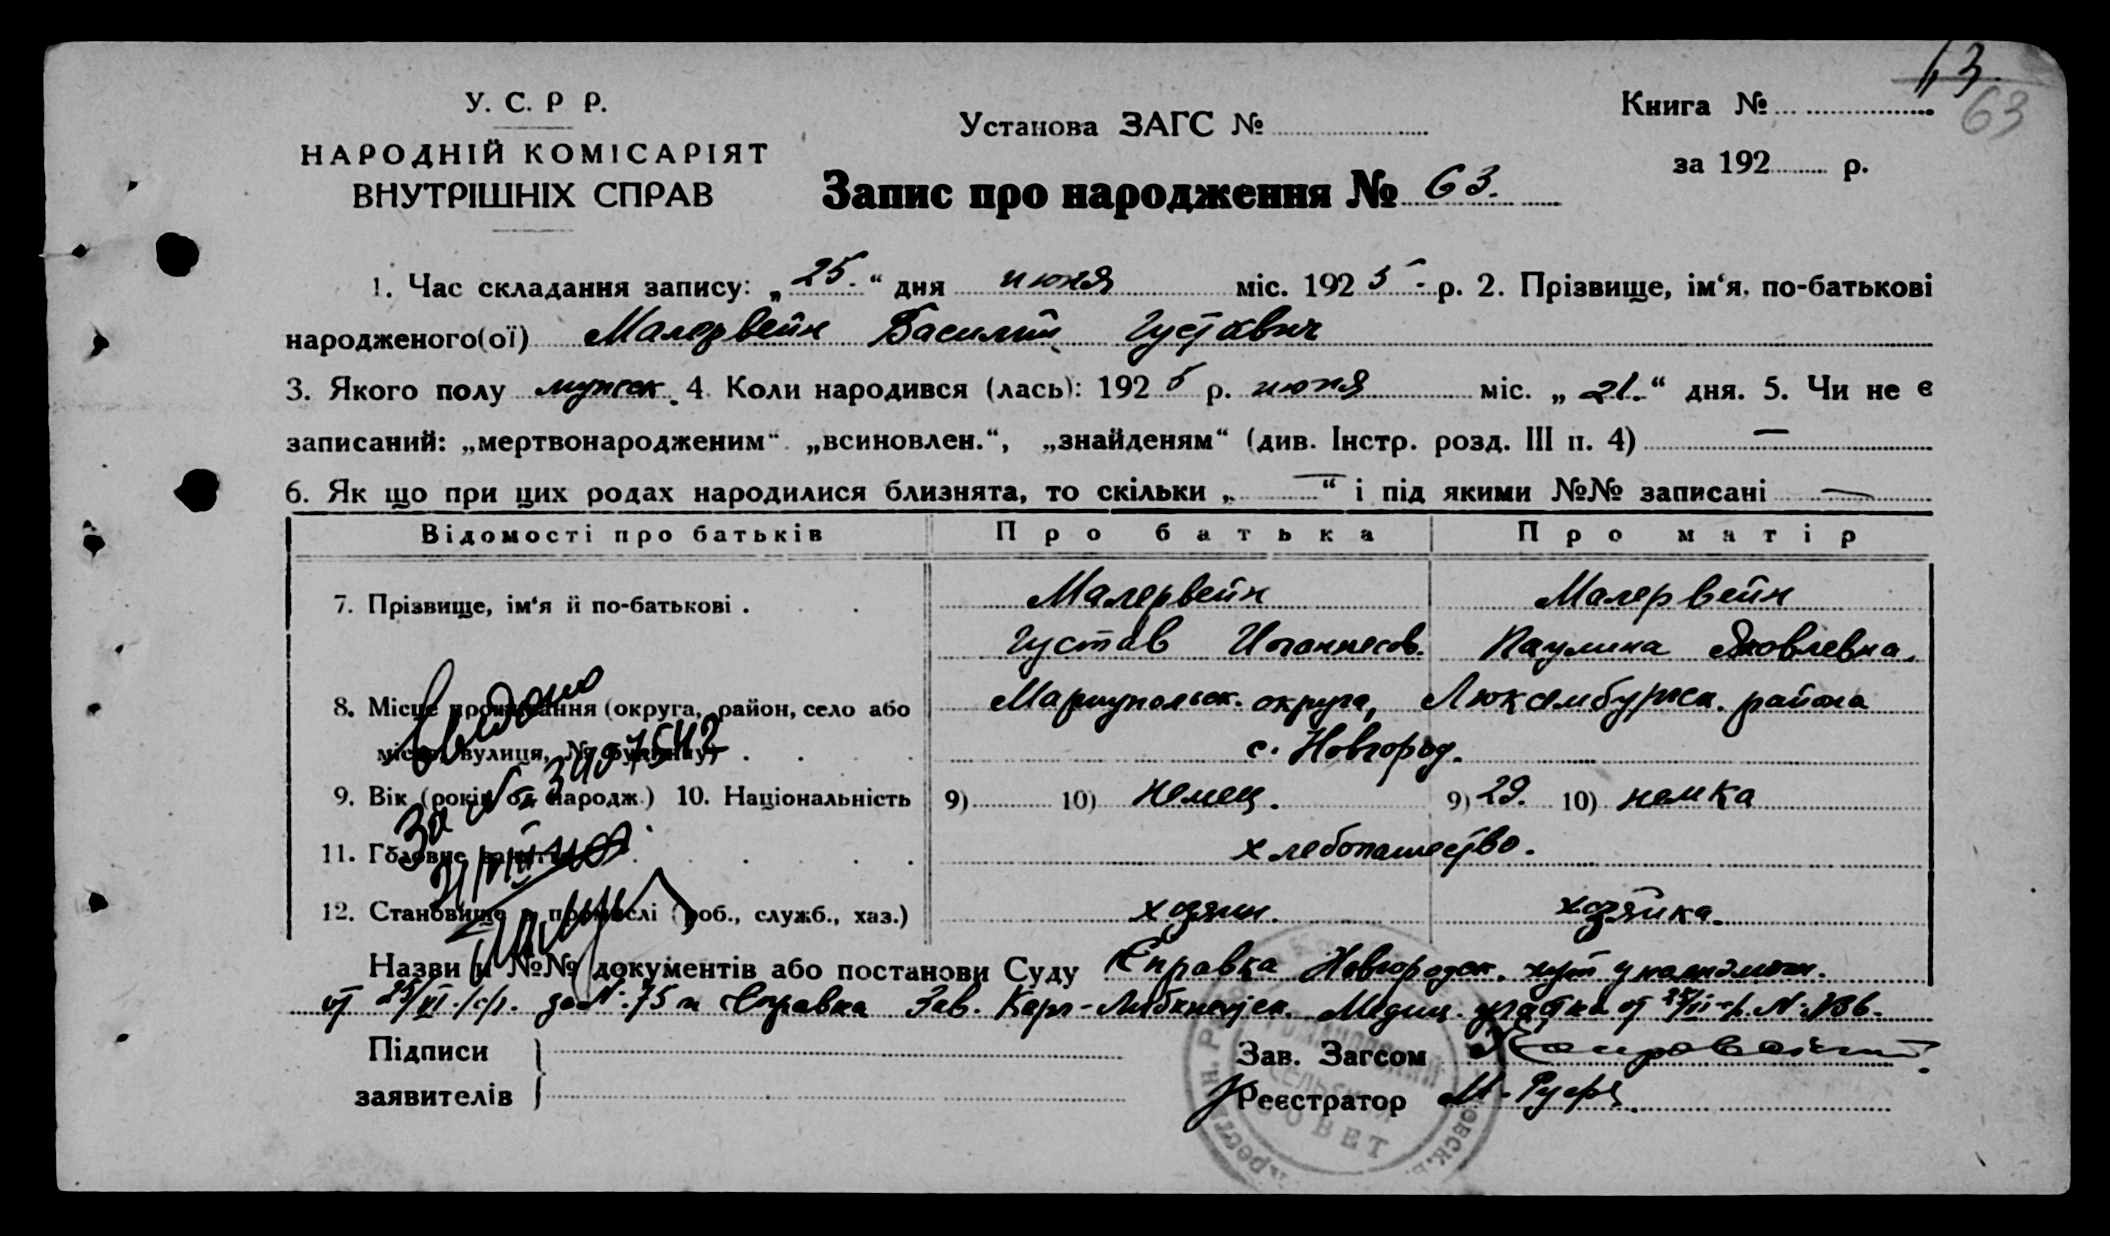 13.
63
У. С. Р Р.
НАРОДНІЙ КОМІСАРІЯТ
ВНУТРІШНІХ СПРАВ
Установа ЗАГС №
Книга №
за 192 р.
Запис про народження № 63.
1. Час складання запису: „25.“ дня июня міс. 1925 р. 2. Прізвище, ім‘я, по-батькові
народженого(ої) Малервейн Василий Густавич
3. Якого полу мужск. 4. Коли народився (лась): 1925 р. июня міс. „21.“ дня. 5. Чи не є
записаний: „мертвонародженим“ „всиновлен.“, „знайденям“ (див. Інстр. розд. III п. 4) —
6. Як що при цих родах народилися близнята, то скільки „—“ і під якими №№ записані —
Відомості про батьків Про батька Про матір
7. Прізвище, ім‘я й по-батькові . Малервейн Малервейн
Густав Иоганнесов. Паулина Яковлевна.
8. Місце проживання (округа, район, село або Мариупольск. округа, Люксембургск. района
місто, вулиця, № будинку) с. Новгород.
9. Вік (років од народж.) 10. Національність 9) 10) немец. 9) 29. 10) немка
11. Головне заняття хлебопашество.
12. Становище в промислі (роб., служб., хаз.) хозяин. хозяйка.
Выдано
За №
Назви й №№ документів або постанови Суду Справка Новгородск.
от 25/VI с/г. за № 75 и Справка Зав. Карл-Либкнехтск. Медиц. участка от
Підписи
заявителів
Зав. Загсом
Реєстратор
СЕЛЬСКИЙ
СОВЕТ